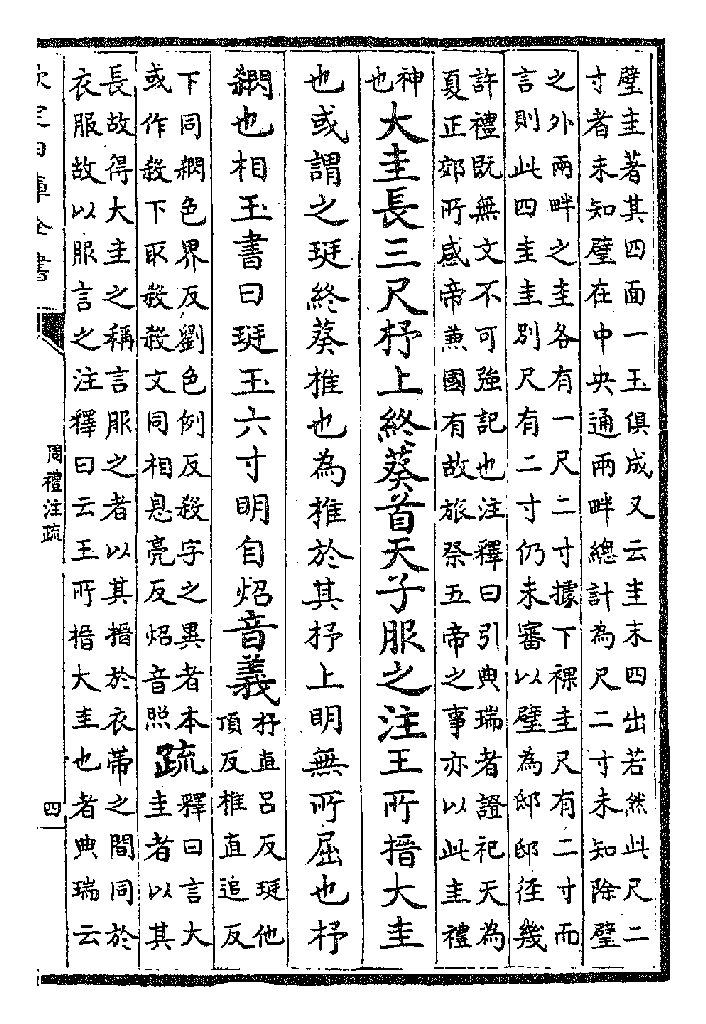 璧圭著其四面一玉俱成又云圭末四出若然此尺二
寸者未知璧在中央通兩畔總計為尺二寸未知除璧
之外兩畔之圭各有一尺二寸據下裸圭尺有二寸而
言則此四圭圭別尺有二寸仍未審以璧為邸邸徑幾
許禮既無文不可強記也注釋曰引典瑞者證祀天為
夏正郊所感帝兼國有故旅祭五帝之事亦以此圭禮
神
也
大圭長三尺杼上終葵首天子服之注王所搢大圭
也或謂之珽終葵椎也為椎於其杼上明無所屈也杼
閷也相玉書曰珽玉六寸明自炤音義
杼直吕反珽他
頂反椎直追反
下同閷色界反劉色例反殺字之異者本
或作殺下取殺殺文同相息亮反炤音照
疏
釋曰言大
圭者以其
長故得大圭之稱言服之者以其搢於衣帶之間同於
衣服故以服言之注釋曰云王所搢大圭也者典瑞云
欽定四庫全書
周禮注疏
四